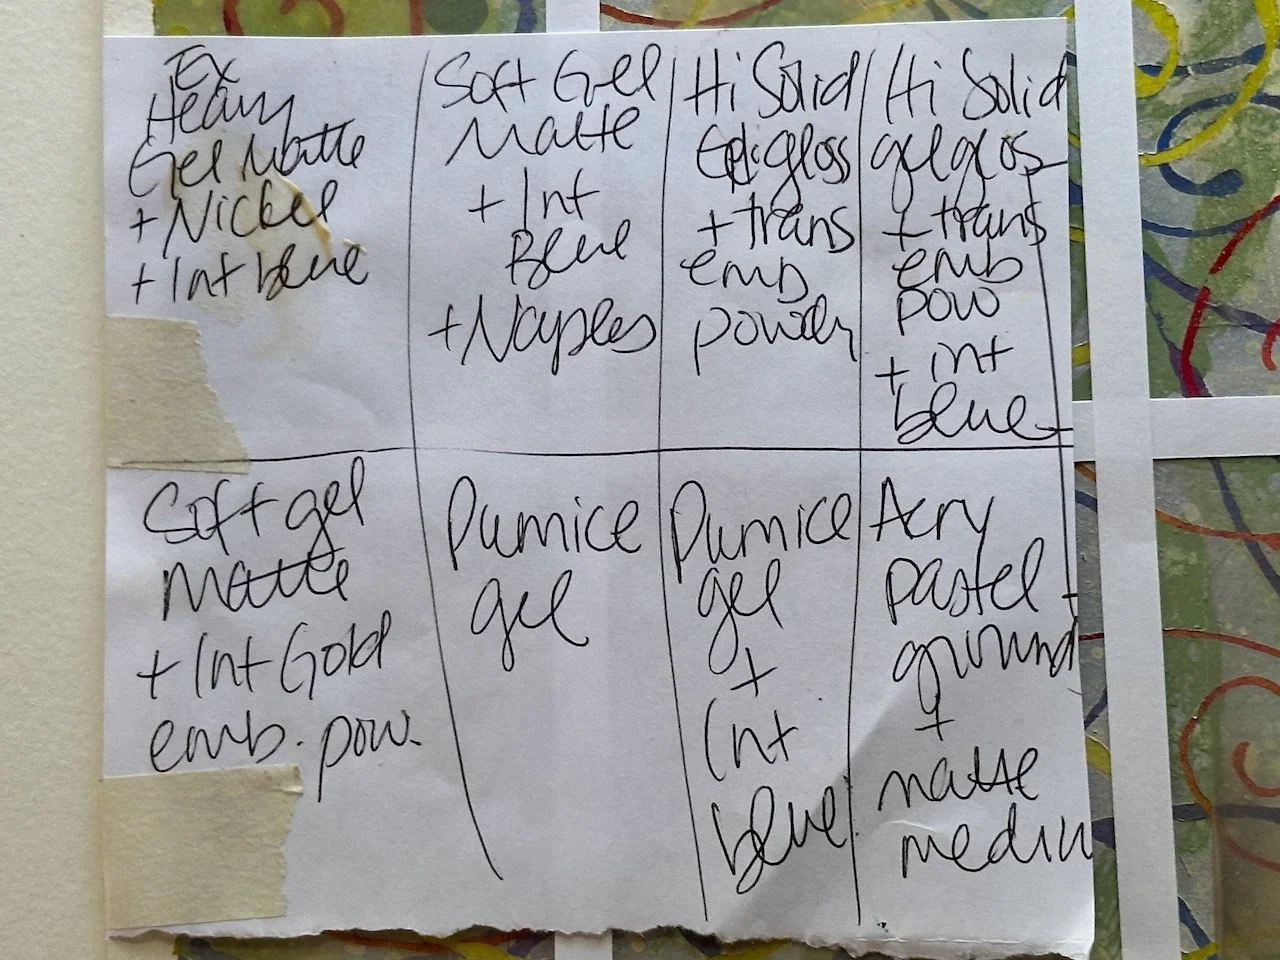 Ex
Heavy
Gel Matte
+ Nickel
+ Int blue
Soft Gel
Matte
+ Int
Blue
+ Naples
Hi Solid
gloss
+ trans
emb
powder
Hi Solid
gel glos
+ trans
emb
pow
+ int
blue
Soft gel
Matte
+ Int Gold
emb. pow.
Pumice
gel
Pumice
gel
+
Int
blue
Acry
pastel
ground
+
matte
mediu